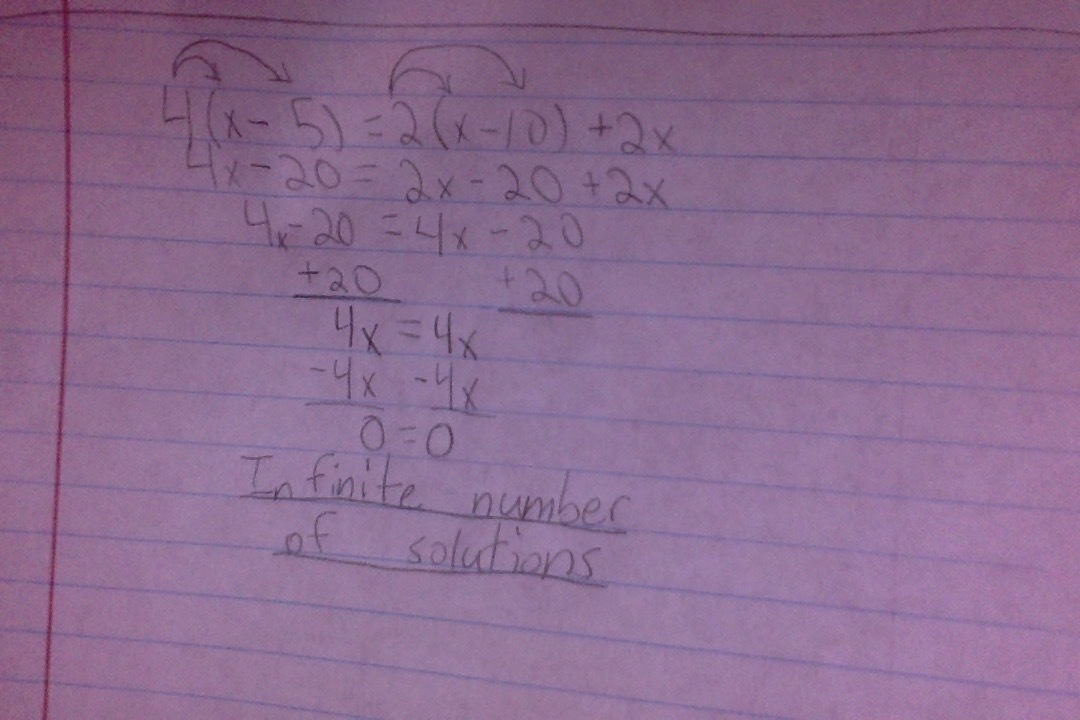 4(x - 5) = 2(x - 10) + 2x
4x - 20 = 2x - 20 + 2x
4x - 20 = 4x - 20
+20 +20
4x = 4x
-4x -4x
0 = 0
Infinite number
of solutions